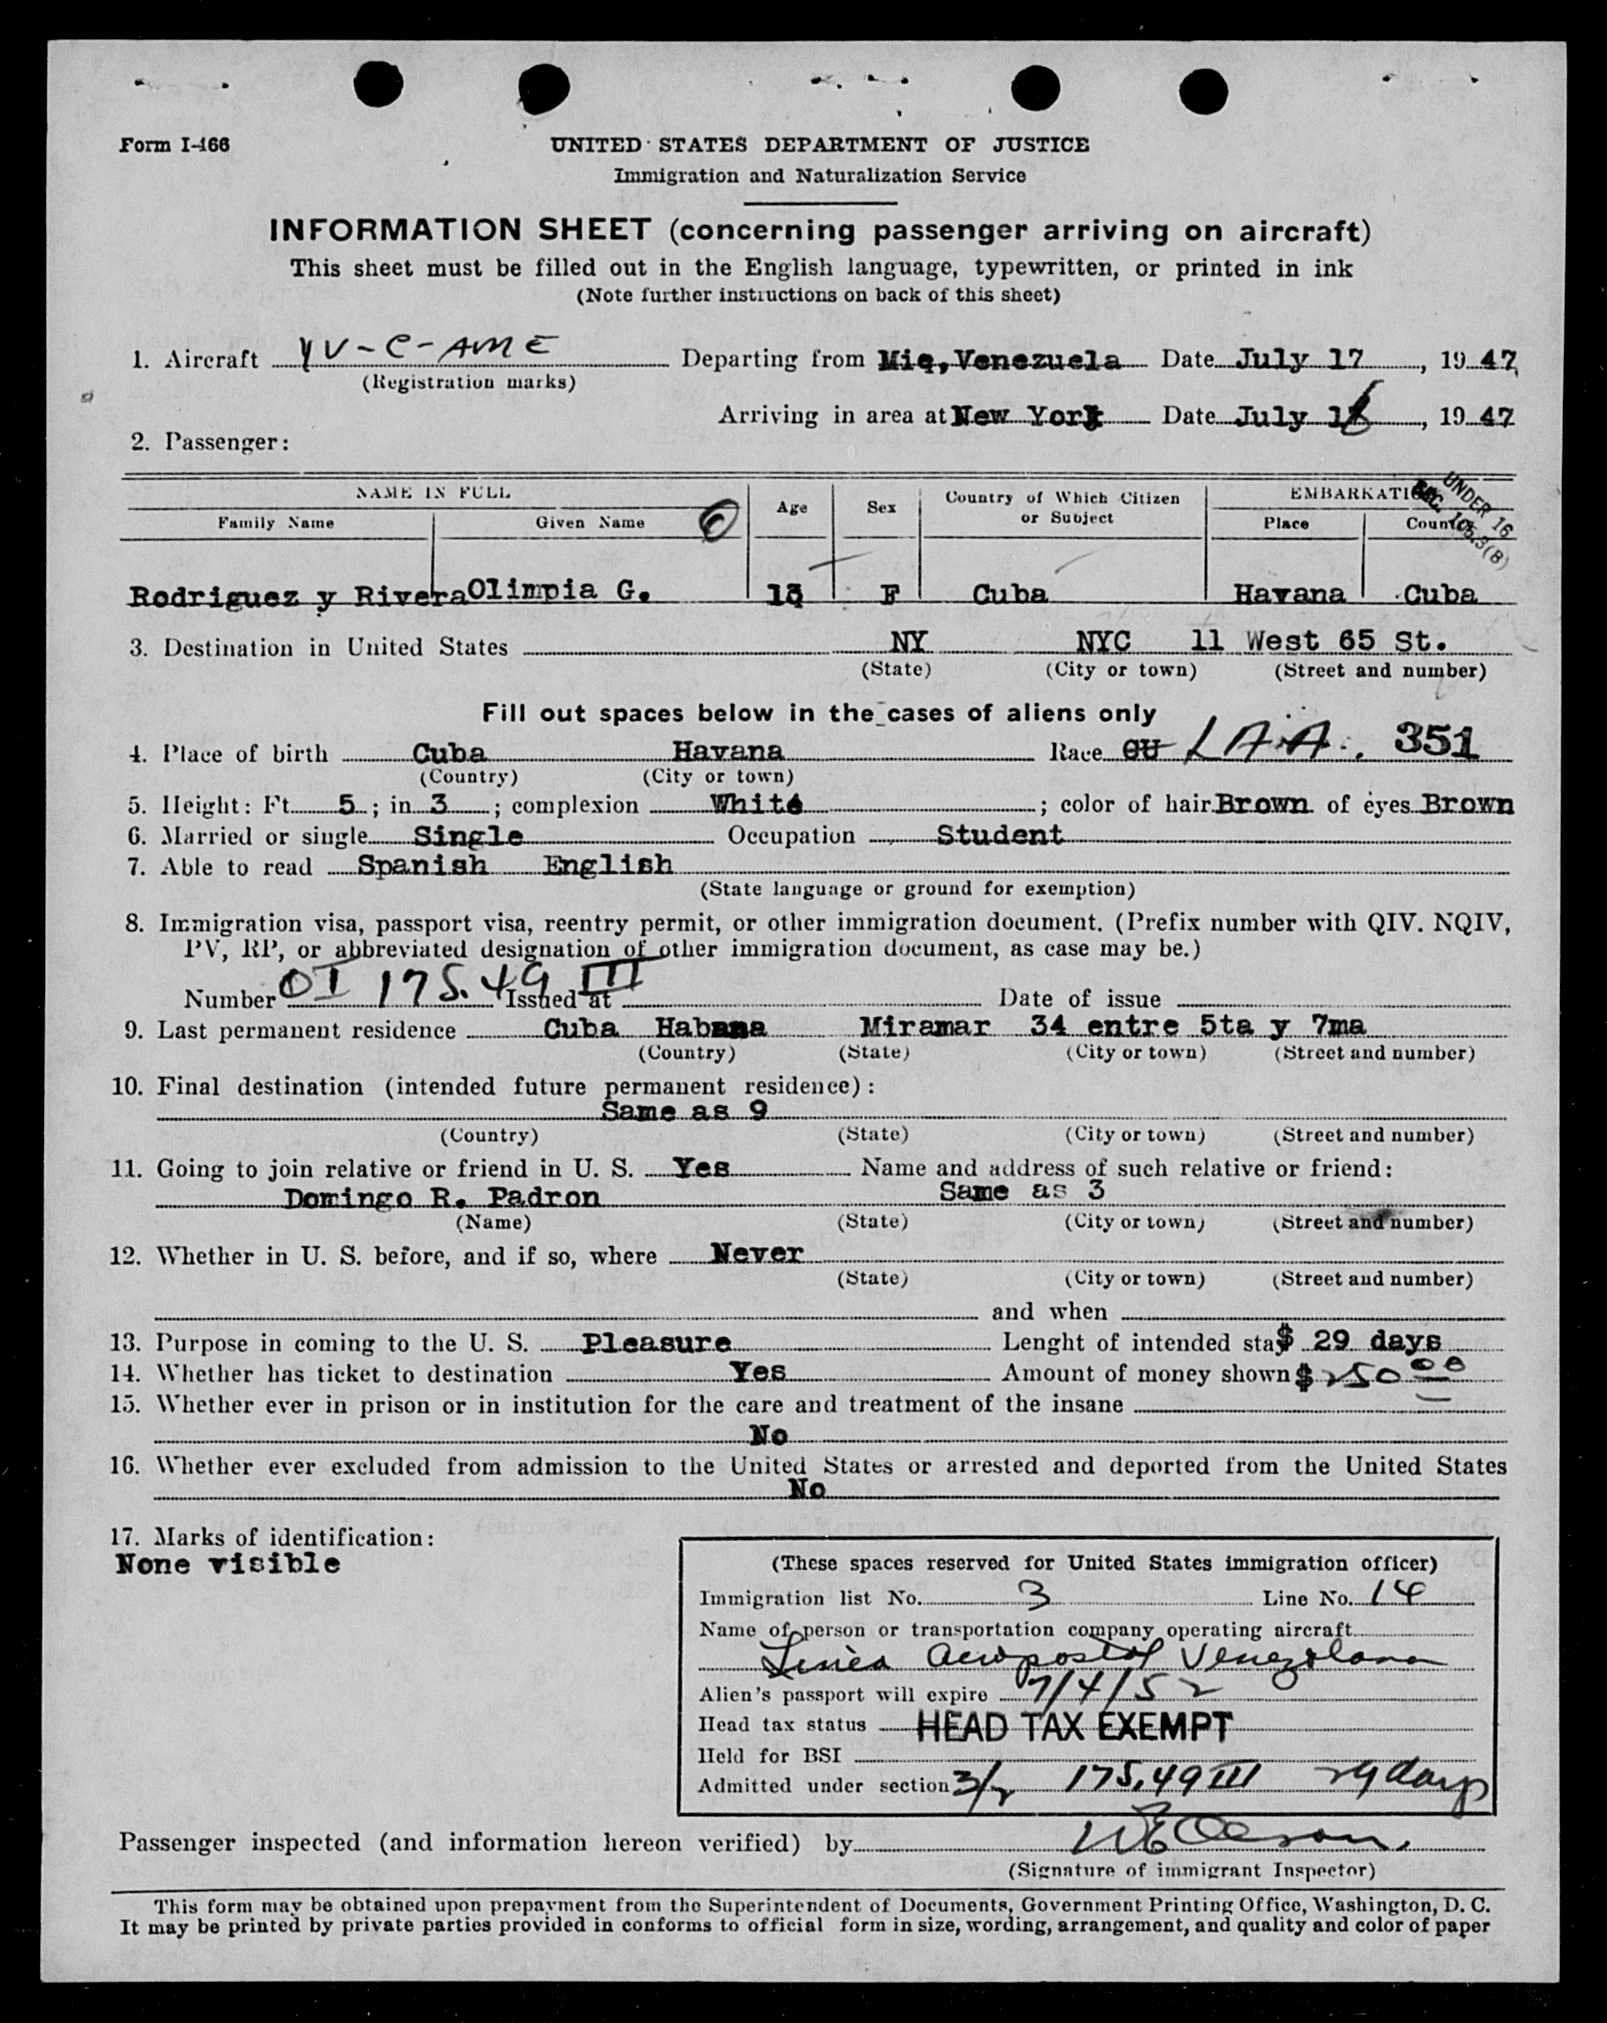 Form I-466
UNITED STATES DEPARTMENT OF JUSTICE
Immigration and Naturalization Service
INFORMATION SHEET (concerning passenger arriving on aircraft)
This sheet must be filled out in the English language, typewritten, or printed in ink
(Note further instructions on back of this sheet)
1. Aircraft YV-C-AME Departing from Miq, Venezuela Date July 17, 1947
(Registration marks)
Arriving in area at New York Date July 18, 1947
2. Passenger:
NAME IN FULL Age Sex Country of Which Citizen or Subject EMBARKATION
Family Name Given Name Place Country
UNDER 16
SEC. 105.3(B)
Rodriguez y Rivera Olimpia G. 13 F Cuba Havana Cuba
3. Destination in United States NY NYC 11 West 65 St.
(State) (City or town) (Street and number)
Fill out spaces below in the cases of aliens only
4. Place of birth Cuba Havana Race CU LAA. 351
(Country) (City or town)
5. Height: Ft. 5; in. 3; complexion White; color of hair Brown of eyes Brown
6. Married or single Single Occupation Student
7. Able to read Spanish English
(State language or ground for exemption)
8. Immigration visa, passport visa, reentry permit, or other immigration document. (Prefix number with QIV. NQIV,
PV, RP, or abbreviated designation of other immigration document, as case may be.)
Number OI 175.49 III Issued at Date of issue
9. Last permanent residence Cuba Habana Miramar 34 entre 5ta y 7ma
(Country) (State) (City or town) (Street and number)
10. Final destination (intended future permanent residence):
Same as 9
(Country) (State) (City or town) (Street and number)
11. Going to join relative or friend in U. S. Yes Name and address of such relative or friend:
Domingo R. Padron Same as 3
(Name) (State) (City or town) (Street and number)
12. Whether in U. S. before, and if so, where Never
(State) (City or town) (Street and number)
and when
13. Purpose in coming to the U. S. Pleasure Lenght of intended stay 29 days
14. Whether has ticket to destination Yes Amount of money shown $250 00
15. Whether ever in prison or in institution for the care and treatment of the insane
No
16. Whether ever excluded from admission to the United States or arrested and deported from the United States
No
17. Marks of identification:
None visible
(These spaces reserved for United States immigration officer)
Immigration list No. 3 Line No. 14
Name of person or transportation company operating aircraft
Linea Aeropostal Venezolana
Alien's passport will expire 7/4/52
Head tax status HEAD TAX EXEMPT
Held for BSI
Admitted under section 3/2 175.49 III 29 days
Passenger inspected (and information hereon verified) by
(Signature of immigrant Inspector)
This form may be obtained upon prepayment from the Superintendent of Documents, Government Printing Office, Washington, D. C.
It may be printed by private parties provided in conforms to official form in size, wording, arrangement, and quality and color of paper